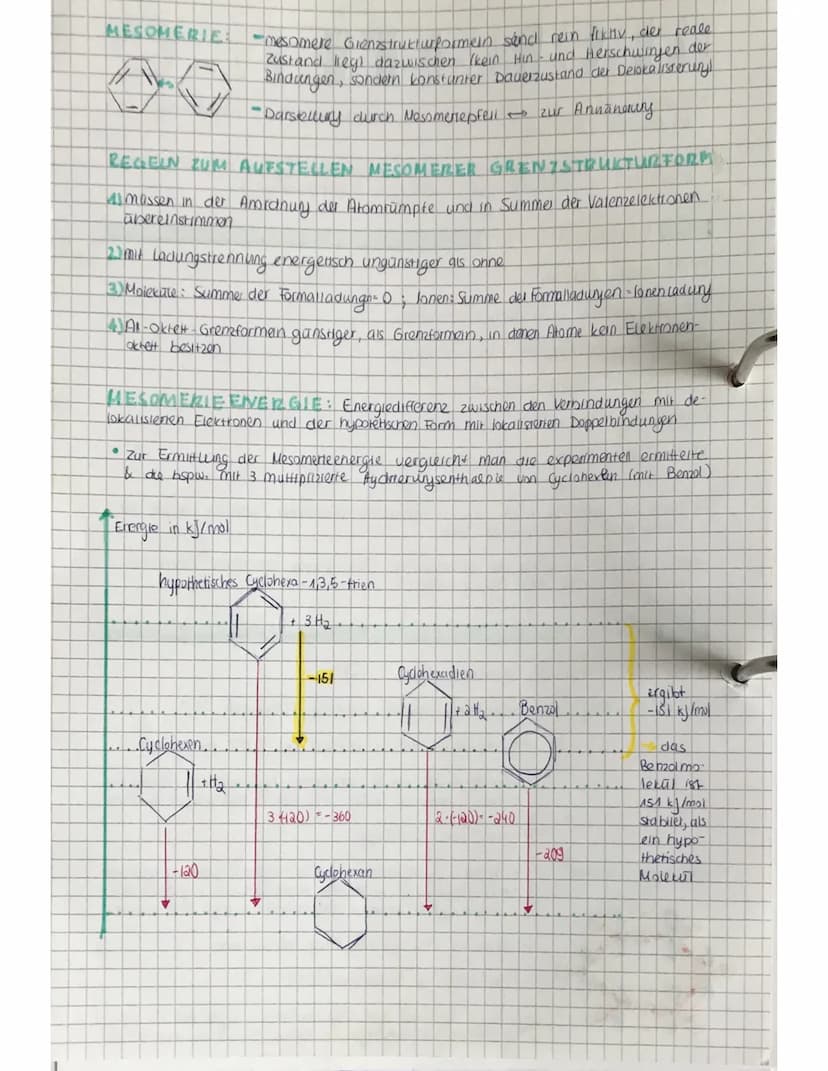 MESOMERIE: - mesomere Grenzstrukturformeln sind rein fiktiv, der reale
Zustand liegt dazwischen (kein Hin- und Herschwingen der
Bindungen, sondern konstanter Dauerzustand der Delokalisierung)
- Darstellung durch Mesomeriepfeil ↔ zur Annäherung
REGELN ZUM AUFSTELLEN MESOMERER GRENZSTRUKTURFORM
1) müssen in der Anordnung der Atomrümpfe und in Summe der Valenzelektronen
übereinstimmen
2) mit Ladungstrennung energetisch ungünstiger als ohne
3) Moleküle: Summe der Formalladungn = 0 ; Ionen: Summe der Formalladungen = Ionenladung
4) Al-Oktett-Grenzformen günstiger, als Grenzformen, in denen Atome kein Elektronen-
oktett besitzen
MESOMERIEENERGIE: Energiedifferenz zwischen den Verbindungen mit de-
lokalisierten Elektronen und der hypothetischen Form mit lokalisierten Doppelbindungen
• Zur Ermittlung der Mesomerieenergie vergleicht man die experimentell ermittelte
& die bspw. mit 3 multiplizierte Hydrierungsenthalpie von Cyclohexen (mit Benzol)
Energie in kJ/mol
hypothetisches Cyclohexa-1,3,5-trien
+ 3H₂
-151
Cyclohexadien
+ 2H₂
Benzol
ergibt
-151 kJ/mol
Cyclohexen
+H₂
→ das
Benzolmo-
lekül ist
151 kJ/mol
stabiler, als
ein hypo-
thetisches
Molekül
3·(-120) = -360
2·(-120) = -240
-209
-120
Cyclohexan